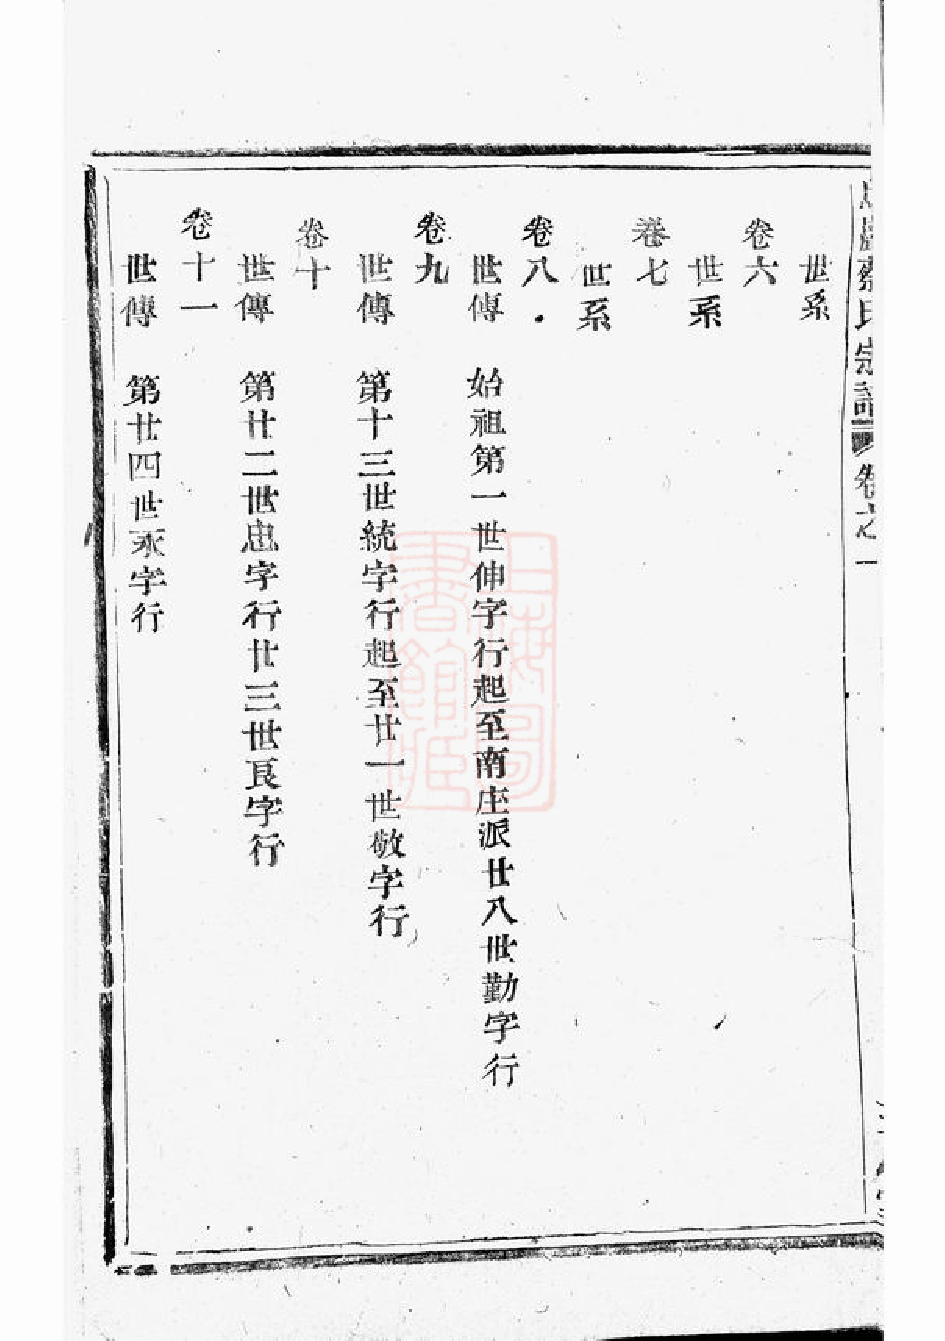 蔡氏宗譜 卷之一
世系
卷六
世系
卷七
世系
卷八
世傳 始祖第一世伸字行起至南庄派廿八世勤字行
卷九
世傳 第十三世統字行起至廿一世敬字行
卷十
世傳 第廿二世忠字行廿三世良字行
卷十一
世傳 第廿四世永字行
上海圖書館藏